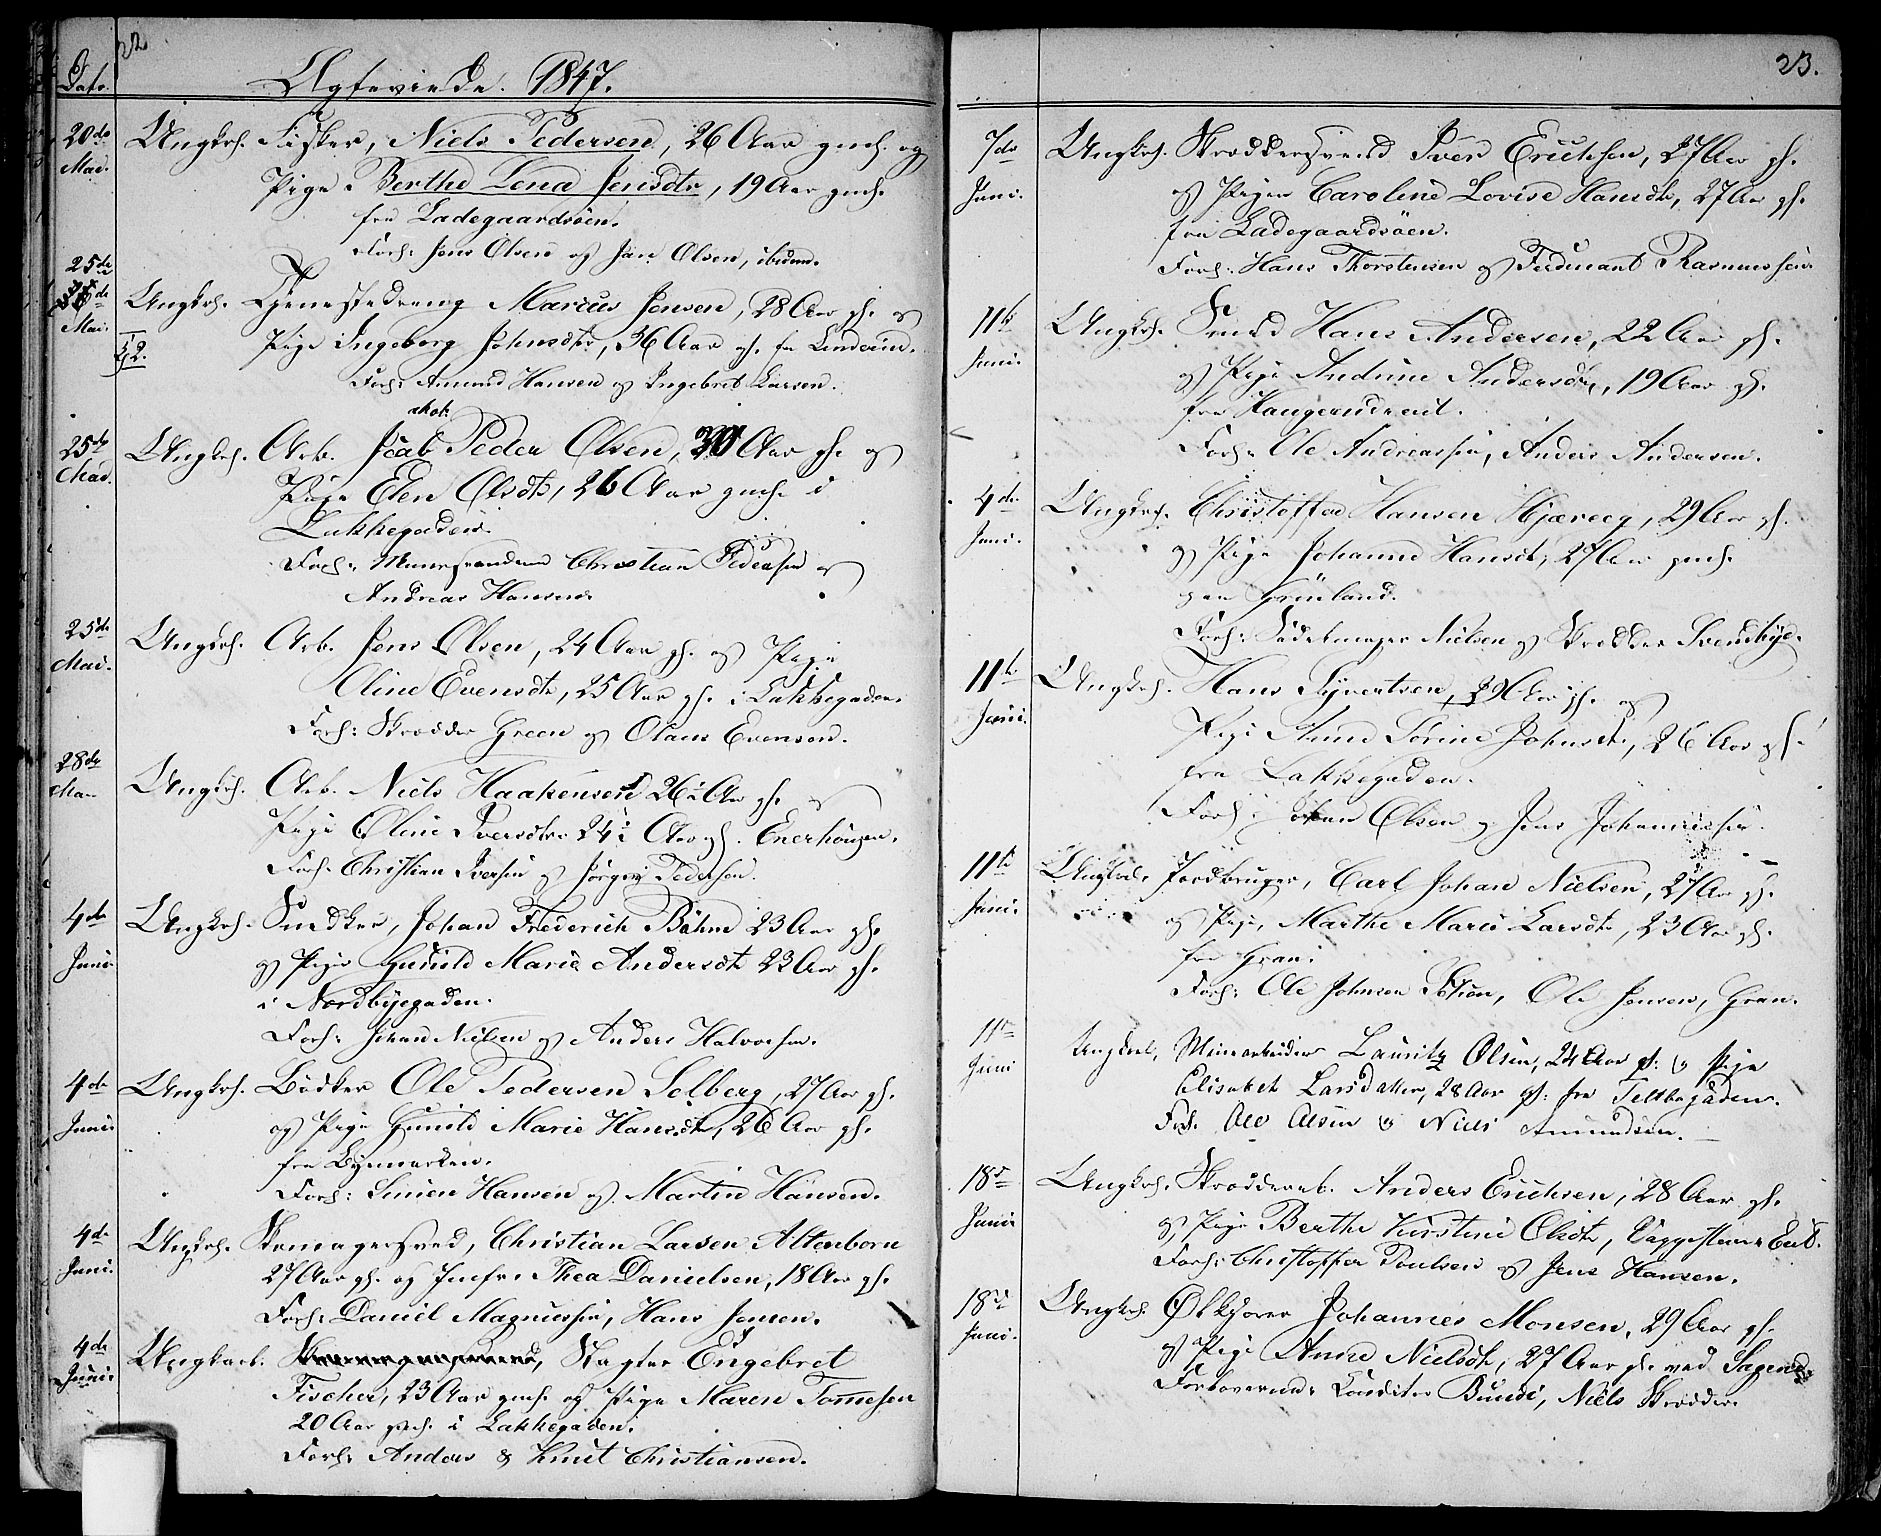 22
Dato.
Ægteviede. 1847.
20de Mai.
Ungkrl. Fisker, Niels Pedersen, 26 Aar gml. og
Pige Berthe Lena Jensdtr, 19 Aar gml.
fra Ladegaardsöen.
Forl: Jens Olsen og Jan Olsen, ibidem.
25de Mai.
Ungkrl. Tjenestedreng Marcus Jensen, 28 Aar gl. og
Pige Ingeborg Johnsdtr, 36 Aar gl. fra Linderud.
Forl: Amund Hansen og Ingebret Larsen.
25de Mai.
Ungkrl. Arb. Jacob Peder Olsen, 30 Aar gl. og
Pige Elen Olsdtr, 26 Aar gml. i
Lakkegaden.
Forl: Murersvendene Christian Pedersen og
Andreas Hansen.
25de Mai.
Ungkrl. Arb. Jens Olsen, 24 Aar gl. og Pige
Oline Evensdtr, 25 Aar gl. i Lakkegaden.
Forl: Skrædder Green og Olaus Evensen.
28de Mai
Ungkrl. Arb. Niels Haakensen 26 Aar gl. og
Pige Oline Iversdtr 24 Aar gl. Enerhougen.
Forl. Christian Iversen og Jørgen Pedersen.
4de Juni.
Ungkrl. Snedker, Johan Frederich Böhme 23 Aar gl.
og Pige Gunild Marie Andersdtr 23 Aar gl.
i Nordbyegaden.
Forl: Johan Nielsen og Anders Halvorsen.
4de Juni.
Ungkrl. Bödker Ole Pedersen Solberg, 27 Aar gl.
og Pige Gunild Marie Hansdtr, 26 Aar gl.
fra Bymarken.
Forl: Simen Hansen og Martin Hansen.
4de Juni.
Ungkrl. Skomagersvend, Christian Larsen Altenborn
27 Aar gl. og Jomfru Thea Danielsen, 18 Aar gl.
Forl: Daniel Magnussen, Hans Jensen.
4de Juni.
Ungkarl. Slagter Engebret
Fischer, 23 Aar gml. og Pige Maren Tomesen
20 Aar gml. i Lakkegaden.
Forl: Anders & Knut Christiansen.
23.
7de Juni.
Ungkrl. Skræddersvend Sven Erichsen, 27 Aar gl.
og Pigen Caroline Lovise Hansdtr, 27 Aar gl.
fra Ladegaardsöen.
Forl: Hans Thorstensen og Ferdinant Rasmussen
11te Juni.
Ungkrl. Smed Hans Andersen, 22 Aar gl.
og Pige Andrine Andersdtr, 19 Aar gl.
fra
Forl. Ole Andreassen, Anders Andersen.
4de Juni.
Ungkrl. Christoffer Hansen Hjæreeg, 29 Aar gl.
og Pige Johanne Hansdtr, 27 Aar gml.
paa Grönland.
Forl: Sadelmager Nielsen og Skrædder Svendbye.
11te Juni.
Ungkrl. Hans Syvertsen, 29 Aar gl. og
Pige Anne Sörine Johnsdtr, 26 Aar gl.
fra Lakkegaden.
Forl: Johan Olsen og Jens Johannessen.
11te Juni.
Ungkrl. Jordbruger, Carl Johan Nielsen, 27 Aar gl.
og Pige, Marthe Marie Larsdtr, 23 Aar gl.
fra Gran.
Forl: Ole Johnsen, Ole Jensen, Gran.
11te Juni
Ungkarl, Minearbeider Lauritz Olsen, 24 Aar gl: og Pige
Elisabeth Larsdatter, 28 Aar gl: fra Teltbogaden.
Forl. Ole Olsen og Niels Amundsen.
18de Juni
Ungkrl. Skrædderarb. Anders Erichsen, 28 Aar gl.
og Pige Berthe Kirstine Olsdtr,
Forl: Christopher Poulsen og Jens Hansen.
18de Juni.
Ungkrl. Ølkjører Johannes Monsen, 29 Aar gl.
og Pige Anne Nielsdtr, 27 Aar gl. ved Sagene
Forloverne: Conditor Bunde, Niels Skrædder.